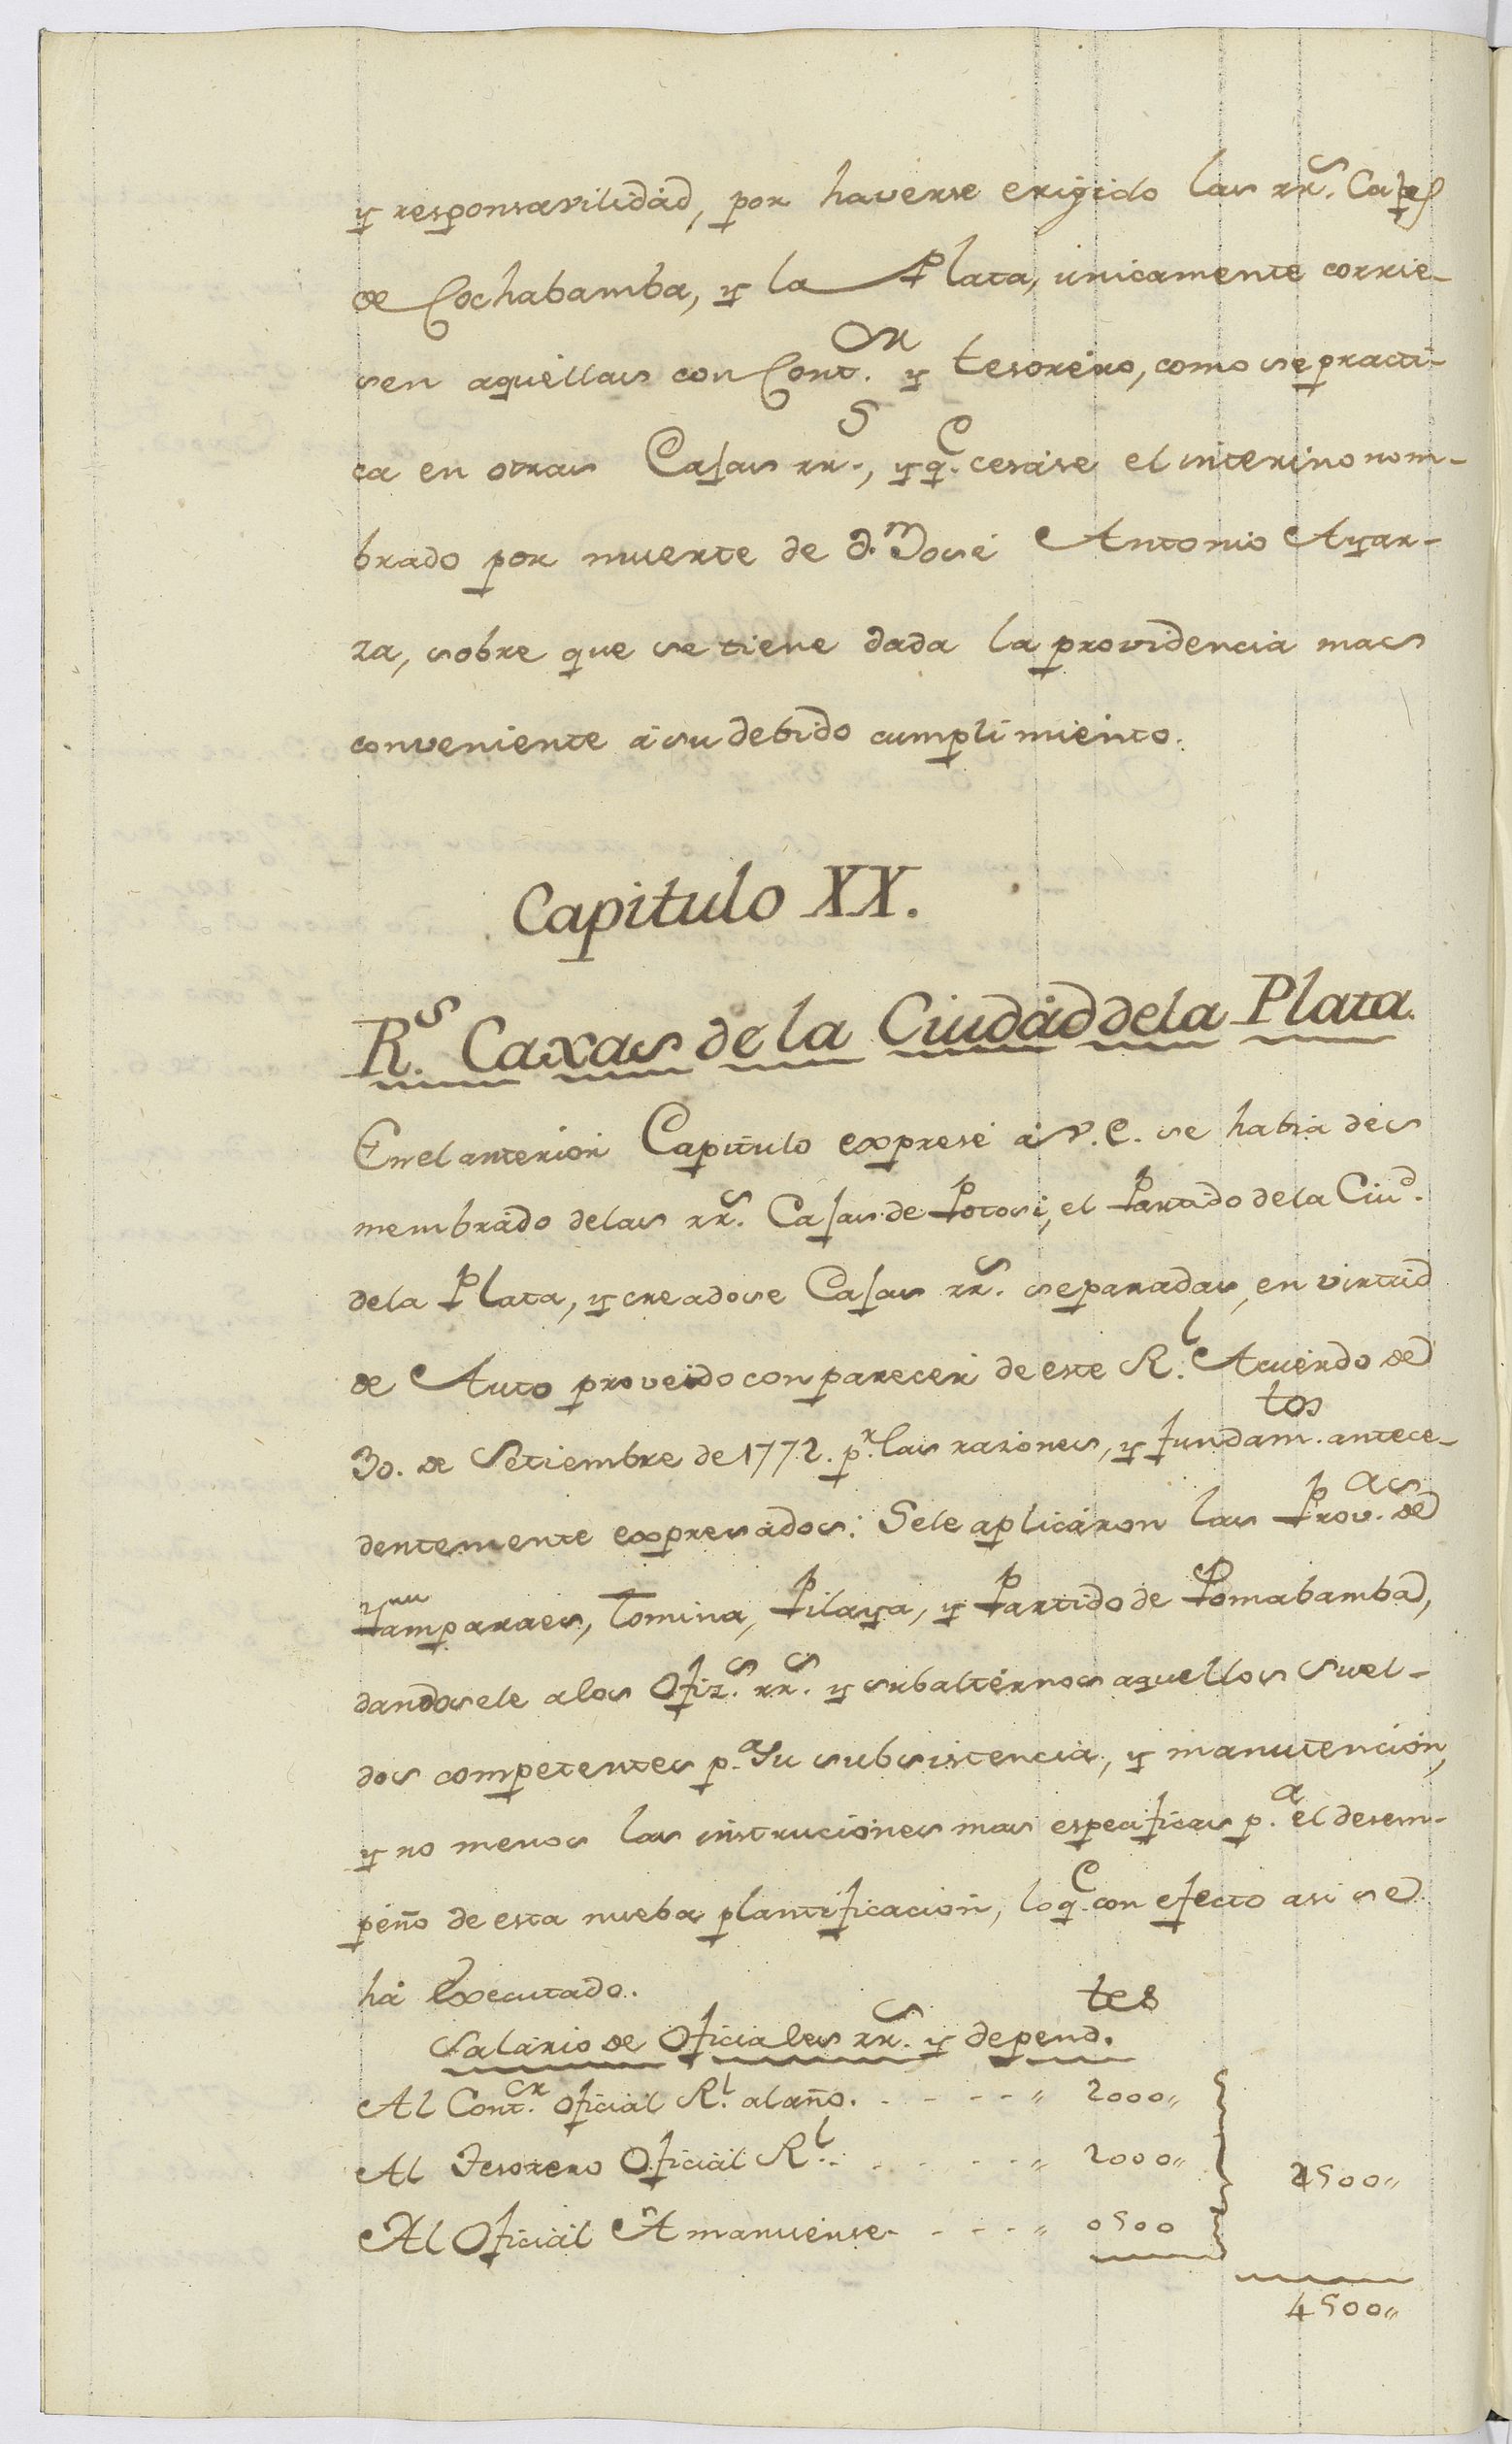 y responsavilidad, por haverse erigido las rr.^s Cajas
de Cochabamba, y la Plata, unicamente corrie-
sen aquellas con Cont.^or y tesorero, como se practi-
ca en otras Cajas rr.^s, y q.^e cesase el interino nom-
brado por muerte de d.^n José Antonio Ayar-
za, sobre que se tiene dada la providencia mas
conveniente á su debido cumplimiento.
Capitulo XX.
R.^s Caxas de la Ciudad dela Plata.
Enel anterior Capitulo expresé á V.E. se habia des
membrado delas rr.^s Cajas de Potosi, el Partido dela Ciu^d.
dela Plata, y creadose Cajas rr.^s separadas, en virtud
de Auto proveido con parecer de este R.^l Acuerdo de
30. de Setiembre de 1772. p.^r las razones, y fundam.^tos antece-
dentemente expresados: Sele aplicáron las Prov.^as de
Yamparaes, Tomina, Pilaya, y Partido de Pomabamba,
dandosele alos Ofiz.^s rr.^s y subaltérnos aquellos Suel-
dos competentes p.^a su subsistencia, y manutencion,
y no menos las instruciones mas especificas p.^a el desem-
peño de esta nueba plantificacion, loq.^e con efecto asi se
há executado.
Salario de Oficiales rr.^s y depend.^tes
Al Cont.^or oficial R.^l al año. . - - - - " 2000"
Al Tesorero Oficial R.^l . . - - - - " 2000" 4500"
Al Oficial Amanuense - - - - " 0500
4500"